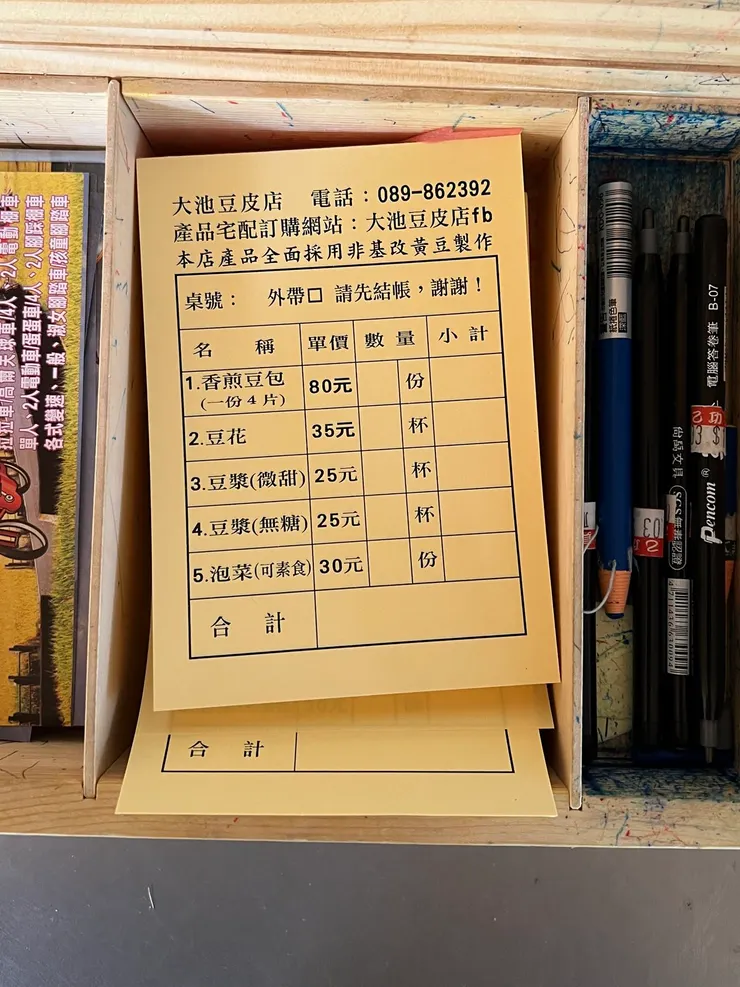 大池豆皮店 電話：089-862392
產品宅配訂購網站：大池豆皮店fb
本店產品全面採用非基改黃豆製作
桌號： 外帶□ 請先結帳，謝謝！
名 稱 單價 數 量 小 計
1.香煎豆包 80元 份
(一份4片)
2.豆花 35元 杯
3.豆漿(微甜) 25元 杯
4.豆漿(無糖) 25元 杯
5.泡菜(可素食) 30元 份
合 計
合 計
單人、2人電動車/蛋蛋車/4人、2人腳踩棚車
各式變速、一般、淑女腳踏車/孩童腳踏車
電腦答卷筆 B-07
Pencom®
尚禹文具
SGS